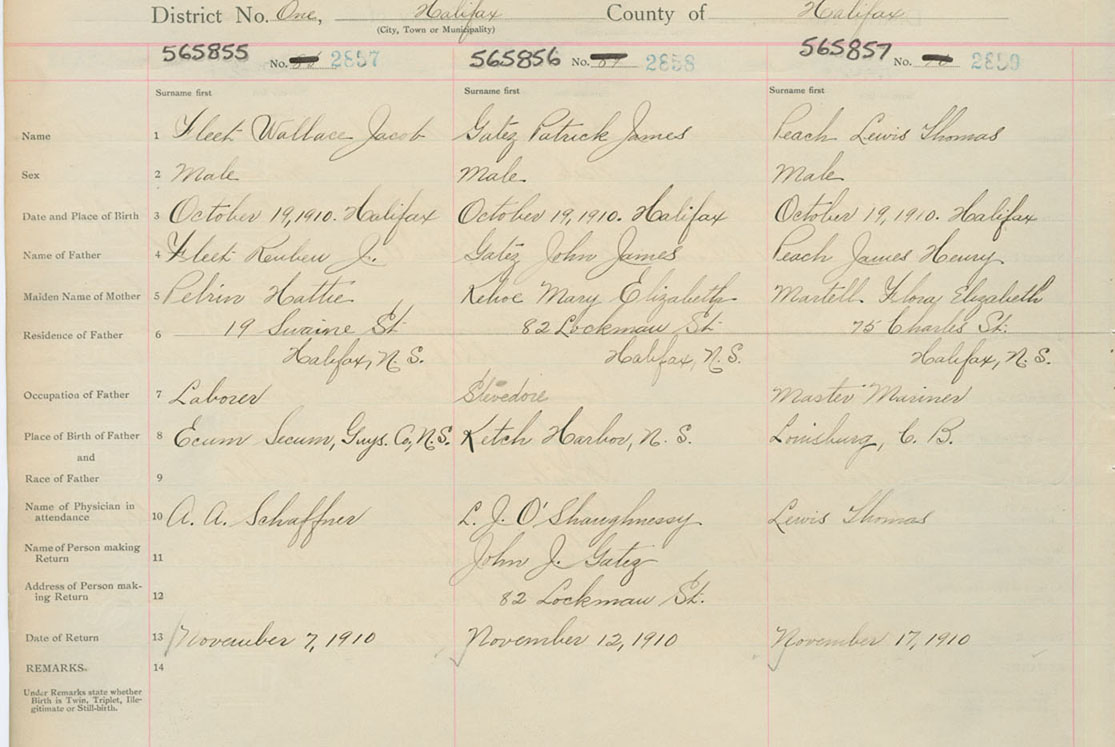 District No. One, Halifax County of Halifax
(City, Town or Municipality)
565855 No. 2857 565856 No. 2858 565857 No. 2859
Surname first Surname first Surname first
Name 1 Fleet Wallace Jacob Gatez Patrick James Peach Lewis Thomas
Sex 2 Male Male Male
Date and Place of Birth 3 October 19, 1910. Halifax October 19, 1910. Halifax October 19, 1910. Halifax
Name of Father 4 Fleet Reuben J. Gatez John James Peach James Henry
Maiden Name of Mother 5 Petrin Hattie Kehoe Mary Elizabeth Martell Flora Elizabeth
Residence of Father 6 19 Swaine St. 82 Lockman St. 75 Charles St.
Halifax, N.S. Halifax, N.S. Halifax, N.S.
Occupation of Father 7 Laborer Stevedore Master Mariner
Place of Birth of Father 8 Ecum Secum, Guys. Co, N.S. Ketch Harbor, N.S. Louisburg, C.B.
and
Race of Father 9
Name of Physician in attendance 10 A. A. Schaffner L. J. O'Shaughnessy Lewis Thomas
Name of Person making Return 11 John J. Gatez
Address of Person mak-
ing Return 12 82 Lockman St.
Date of Return 13 November 7, 1910 November 12, 1910 November 17, 1910
REMARKS. 14
Under Remarks state whether
Birth is Twin, Triplet, Ille-
gitimate or Still-birth.